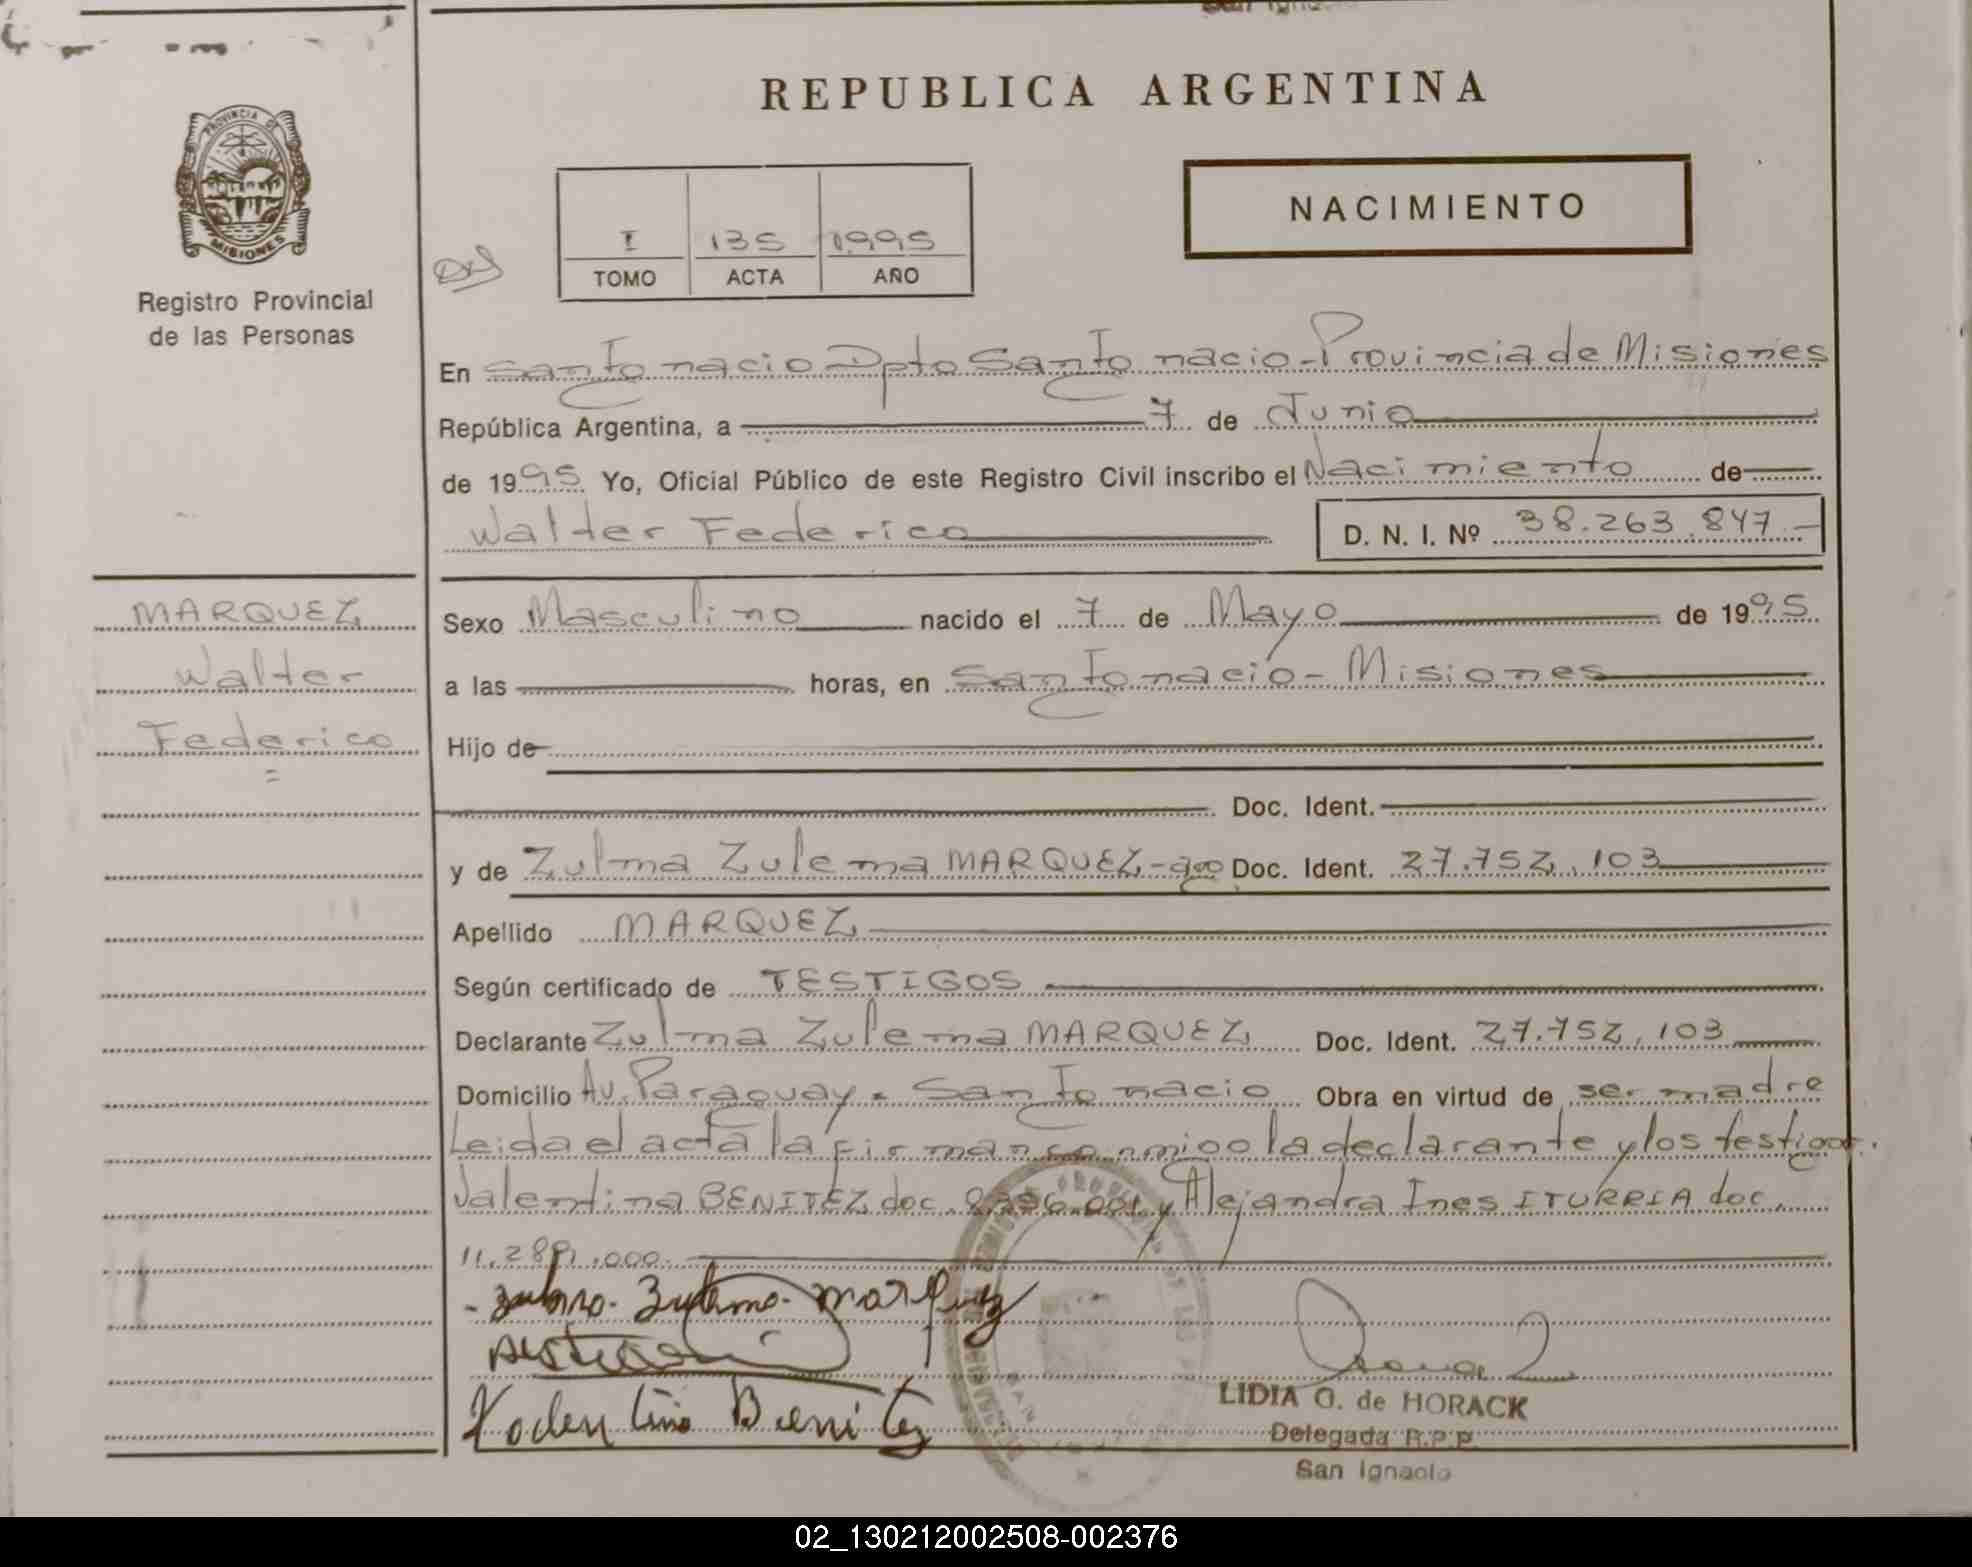 REPUBLICA ARGENTINA
PROVINCIA DE
MISIONES
Registro Provincial
de las Personas
I 135 1995
TOMO ACTA AÑO
NACIMIENTO
En San Ignacio Dpto San Ignacio - Provincia de Misiones
República Argentina, a 7 de Junio
de 1995 Yo, Oficial Público de este Registro Civil inscribo el Nacimiento de
Walter Federico D. N. I. Nº 38.263.847.-
MARQUEZ
Walter
Federico
=
Sexo Masculino nacido el 7 de Mayo de 1995
a las horas, en San Ignacio - Misiones
Hijo de
Doc. Ident.
y de Zulma Zulema MARQUEZ - Doc. Ident. 27.752.103
Apellido MARQUEZ
Según certificado de TESTIGOS
Declarante Zulma Zulema MARQUEZ Doc. Ident. 27.752.103
Domicilio Av. Paraguay - San Ignacio Obra en virtud de ser madre
Leida el acta la firman conmigo la declarante y los testigos.
Valentina BENITEZ doc. y Alejandra Ines ITURRIA doc.
Zulma Zulema Marquez
Valentina Benitez
LIDIA G. de HORACK
Delegada R.P.P.
San Ignacio
02_130212002508-002376